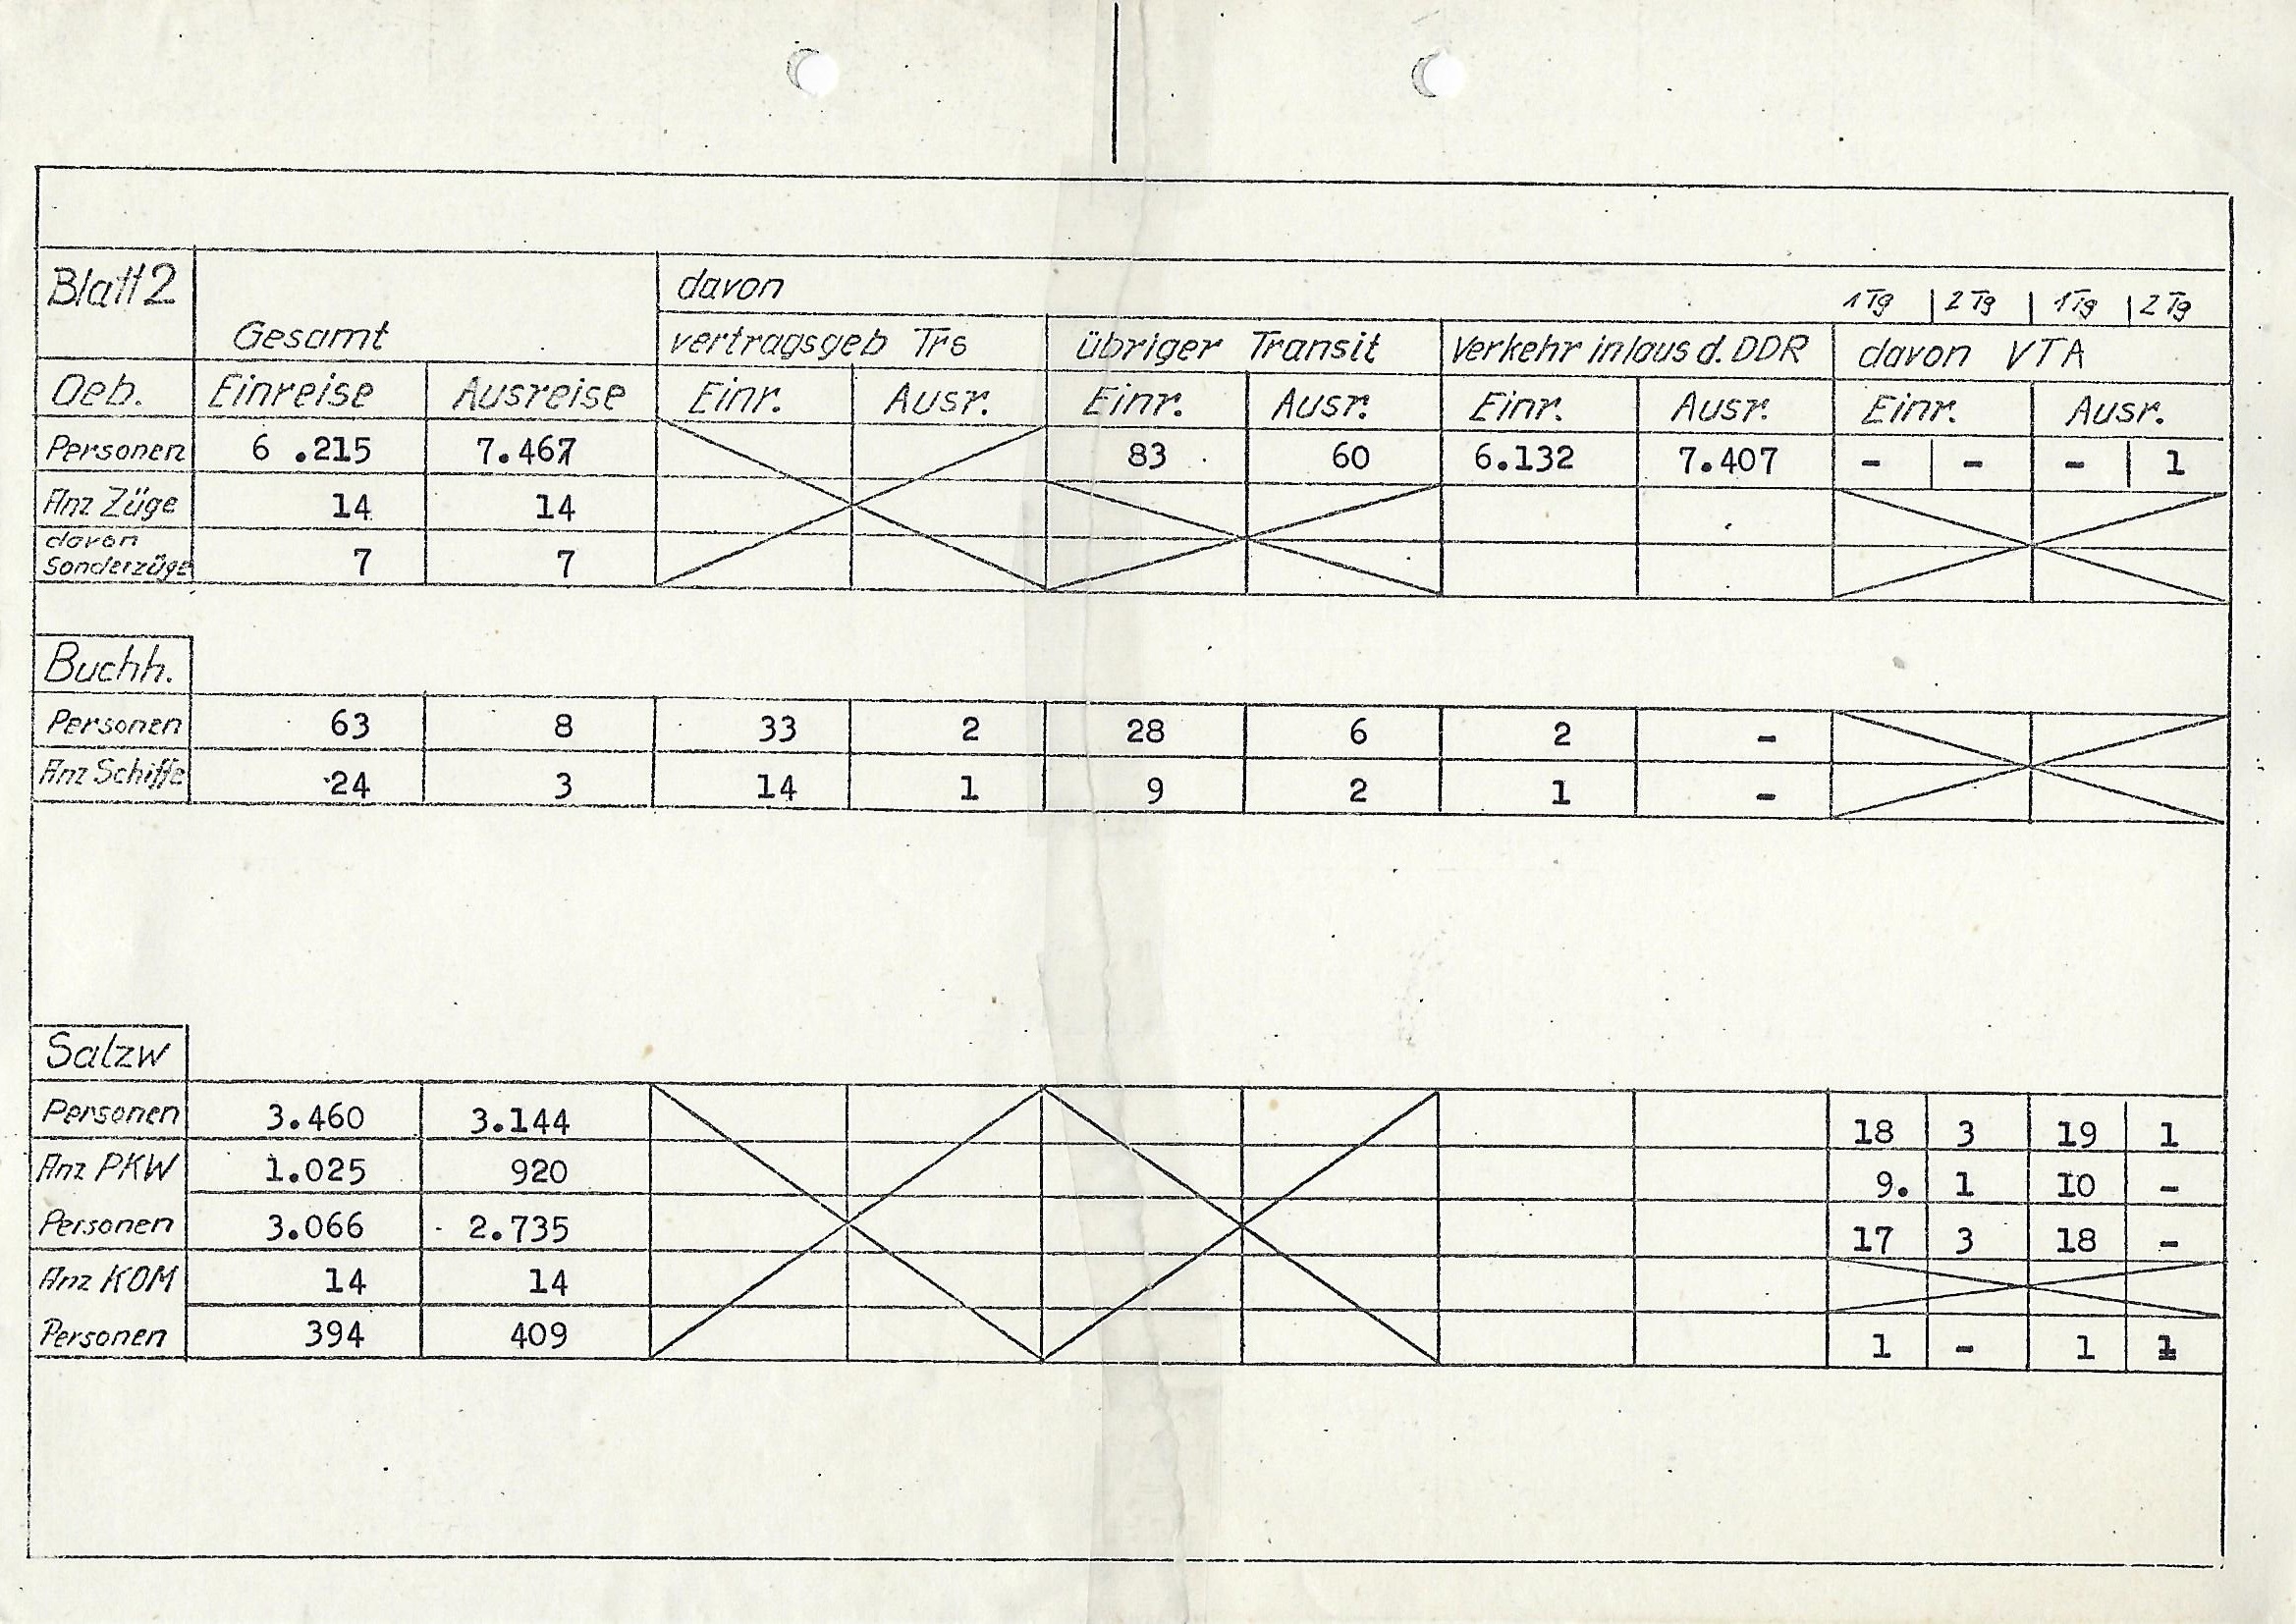 Blatt 2 davon 1 Tg 2 Tg 1 Tg 2 Tg
Gesamt vertragsgeb Trs übriger Transit Verkehr in/aus d. DDR davon VTA
Oeb. Einreise Ausreise Einr. Ausr. Einr. Ausr. Einr. Ausr. Einr. Ausr.
Personen 6 .215 7.467 83 60 6.132 7.407 - - - 1
Anz Züge 14 14
davon
Sonderzüge 7 7
Buchh.
Personen 63 8 33 2 28 6 2 -
Anz Schiffe 24 3 14 1 9 2 1 -
Salzw
Personen 3.460 3.144 18 3 19 1
Anz PKW 1.025 920 9. 1 I0 -
Personen 3.066 2.735 17 3 18 -
Anz KOM 14 14
Personen 394 409 1 - 1 1